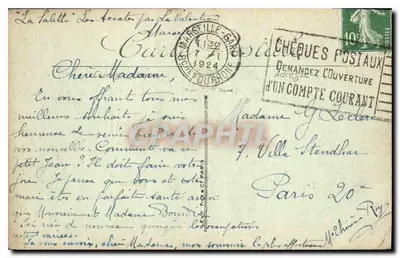 "La Salette" Les Accates par La Valentine
Marseille
Carte Postale
MARSEILLE-GARE
12 30
7 - 1
1924
BCHES DU RHONE
10
CHÈQUES POSTAUX
DEMANDEZ L'OUVERTURE
D'UN COMPTE COURANT
Chère Madame,
En vous offrant tous nos
meilleurs souhaits, je suis
heureuse de venir prendre de
vos nouvelles. Comment va ce
petit Jean? Il doit faire votre
joie. Je pense que vous et votre
mari êtes en parfaite santé ainsi
que Monsieur et Madame
de nouveau quoique les occupations
variées.
Je vous envoie, chère Madame, mon souvenir le plus affectueux
Madame G. Leclerc
7, Villa Stendhal
Paris 20e